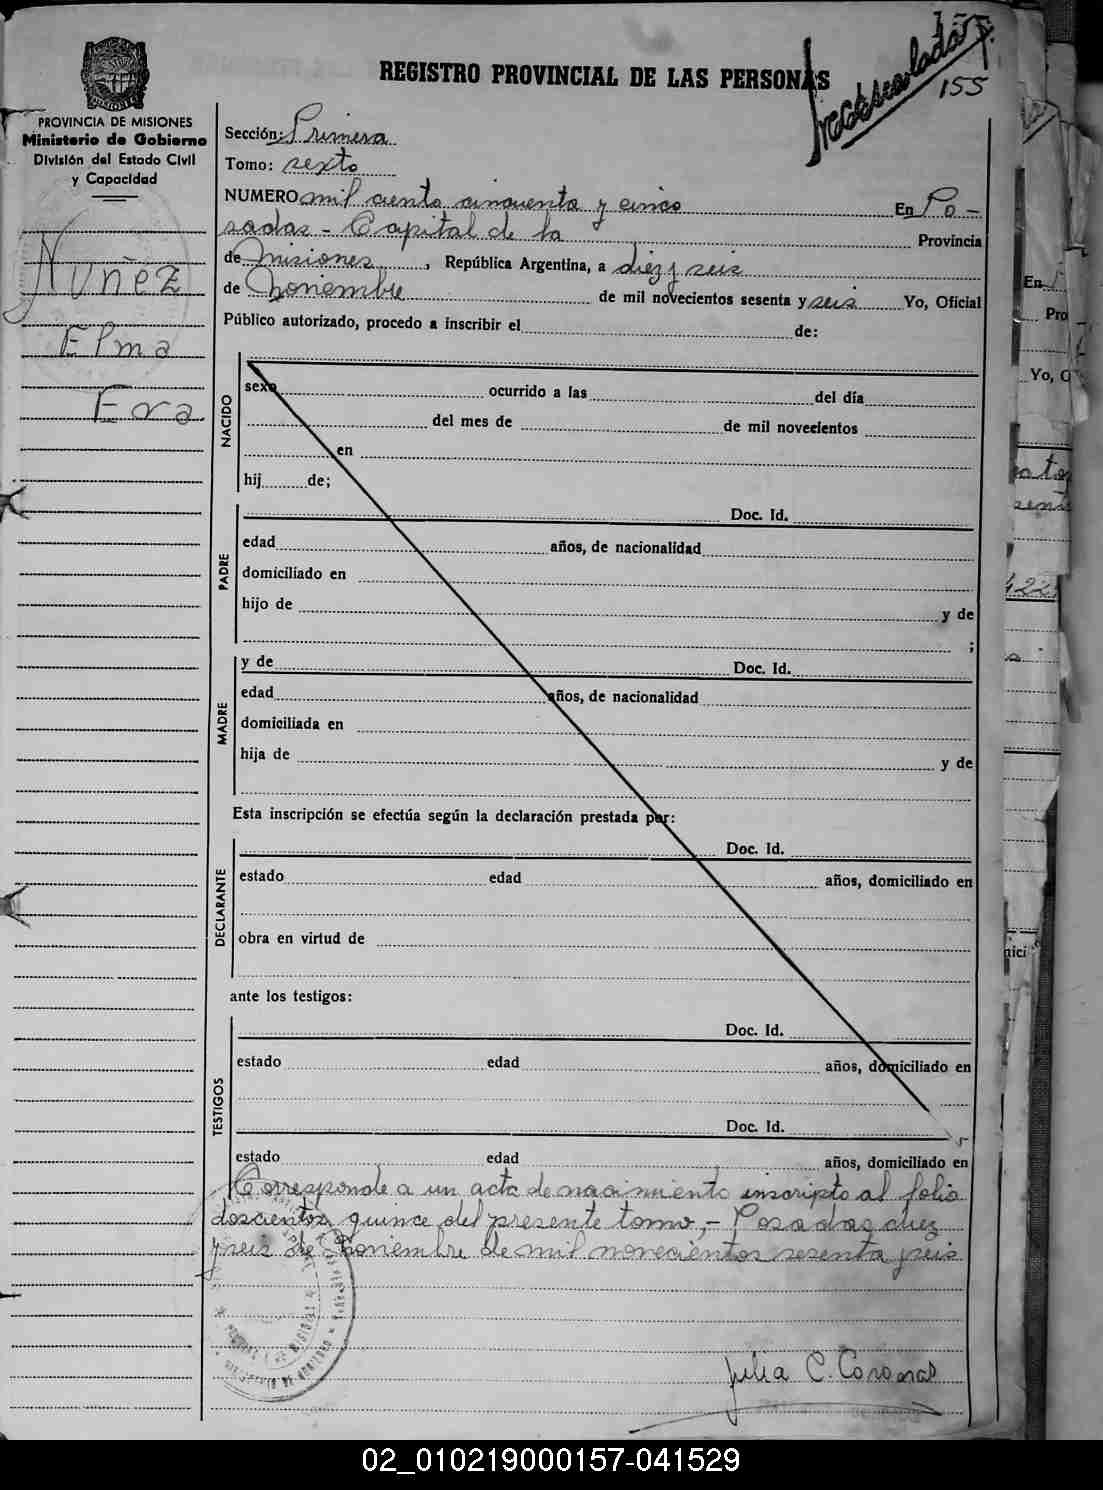 Inmascalada
155
REGISTRO PROVINCIAL DE LAS PERSONAS
PROVINCIA DE MISIONES
Ministerio de Gobierno
División del Estado Civil
y Capacidad
Nuñez
Elma
Eva
Sección: Primera
Tomo: sexto
NUMERO mil ciento cincuenta y cinco En Po-
sadas - Capital de la Provincia
de Misiones, República Argentina, a diez y seis
de Noviembre de mil novecientos sesenta y seis Yo, Oficial
Público autorizado, procedo a inscribir el de:
NACIDO
sexo ocurrido a las del día
del mes de de mil novecientos
en
hij de;
PADRE
Doc. Id.
edad años, de nacionalidad
domiciliado en
hijo de y de
;
MADRE
y de Doc. Id.
edad años, de nacionalidad
domiciliada en
hija de y de
Esta inscripción se efectúa según la declaración prestada por:
DECLARANTE
Doc. Id.
estado edad años, domiciliado en
obra en virtud de
ante los testigos:
TESTIGOS
Doc. Id.
estado edad años, domiciliado en
Doc. Id.
estado edad años, domiciliado en
Corresponde a un acta de nacimiento inscripto al folio
doscientos quince del presente tomo,- Posadas diez
y seis de Noviembre de mil novecientos sesenta y seis
Julia C. Coronas
En
Pro
Yo, O
02_010219000157-041529